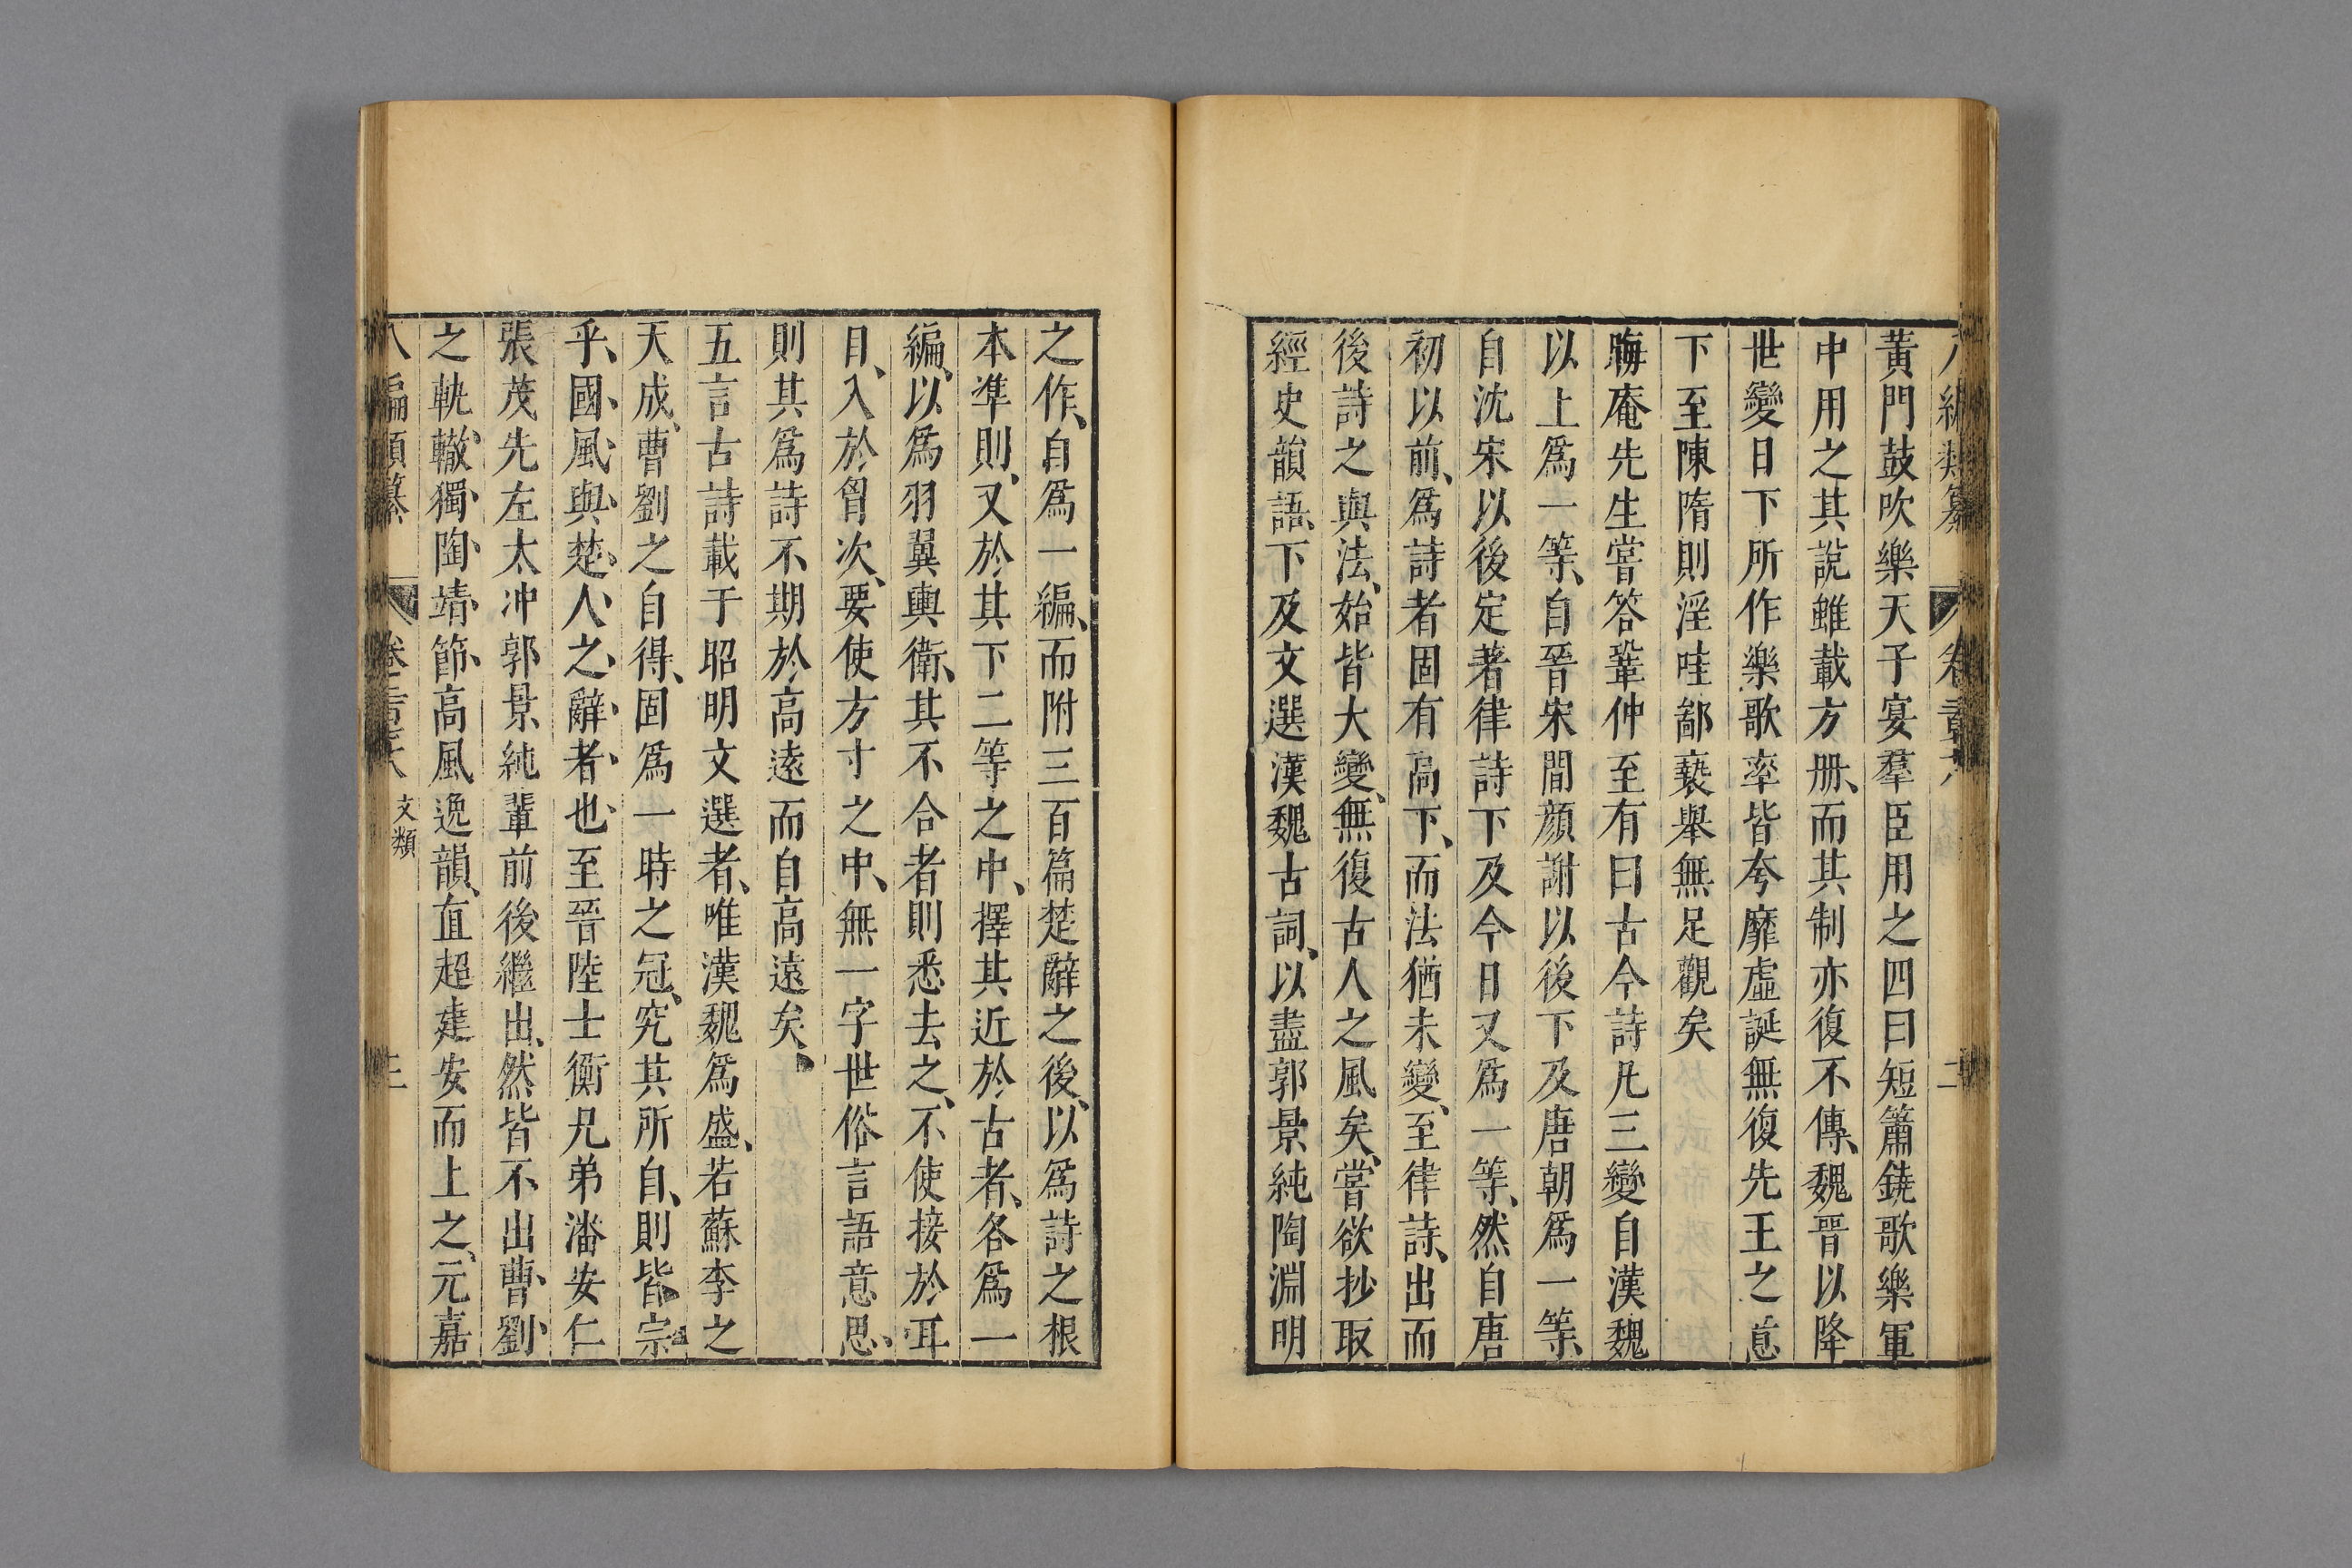 黃門鼓吹樂天子宴羣臣用之四曰短簫鐃歌樂軍
中用之其說雖載方册、而其制亦復不傳、魏晉以降
世變日下所作樂歌率皆夸靡虛誕無復先王之意
下至陳隋則淫哇鄙褻舉無足觀矣
晦庵先生嘗答鞏仲至有曰古今詩凡三變自漢魏
以上爲一等、自晉宋間顏謝以後下及唐朝爲一等、
自沈宋以後定著律詩下及今日又爲一等、然自唐
初以前、爲詩者固有高下、而法猶未變、至律詩、出而
後詩之與法、始皆大變、無復古人之風矣、嘗欲抄取
經史韻語、下及文選漢魏古詞、以盡郭景純陶淵明
之作、自爲一編、而附三百篇楚辭之後、以爲詩之根
本準則、又於其下二等之中、擇其近於古者、各爲一
編、以爲羽翼輿衛、其不合者則悉去之、不使接於耳
目、入於胷次、要使方寸之中、無一字世俗言語意思、
則其爲詩不期於高遠而自高遠矣、
五言古詩載于昭明文選者、唯漢魏爲盛、若蘇李之
天成、曹劉之自得、固爲一時之冠、究其所自、則皆宗
乎、國、風、與、楚、人、之、辭、者、也、至晉陸士衡兄弟潘安仁
張茂先左太冲郭景純輩前後繼出、然皆不出曹、劉、
之軌、轍、獨、陶、靖、節、高風逸韻、直超建安而上之、元嘉
八編類纂 卷 文類 三